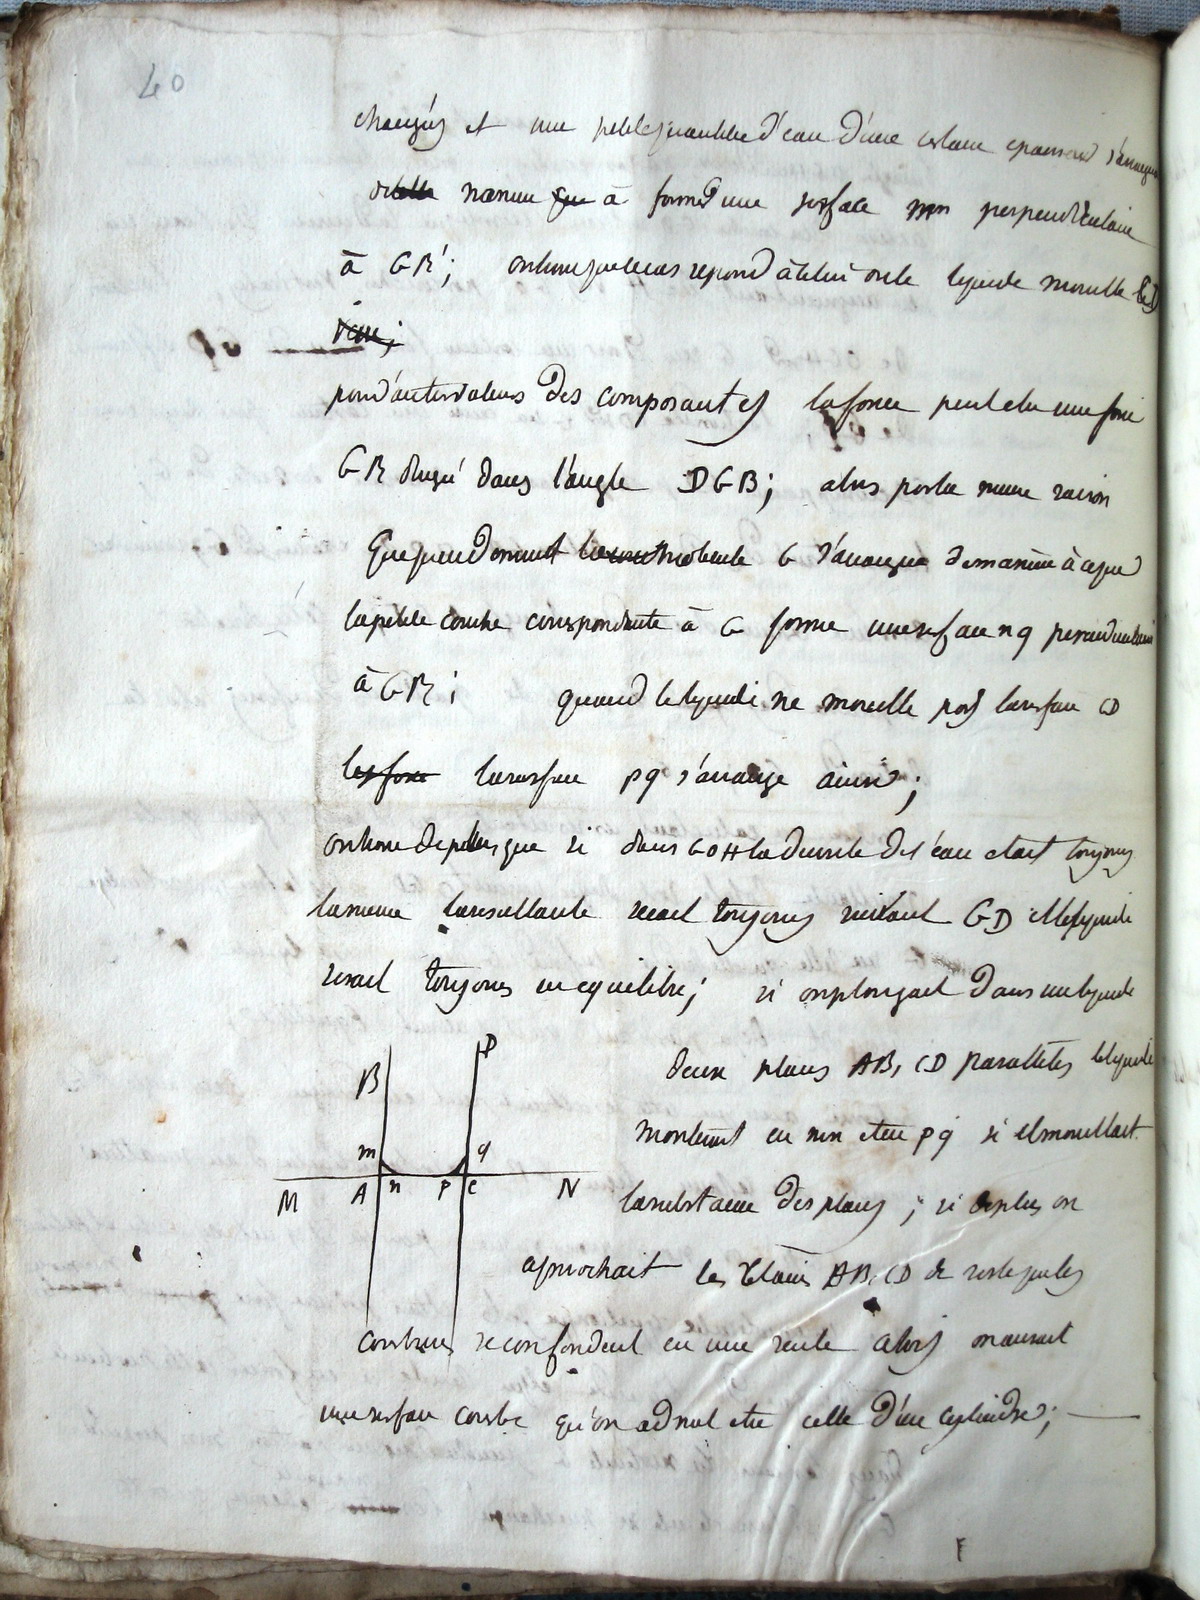 40
et une petite quantité d'eau d'une certaine
à former une surface mn perpendiculaire
à GR'; on trouve que le cas répond à celui où le liquide mouille CD
pour d'autres valeurs des composantes la force peut etre une force
GR dirigé dans l'angle DGB; alors par la meme raison
que precedemment la molecule G s'arrange de maniere à ce que
la petite couche correspondante à G forme une surface nq perpendiculaire
à GR; quand le liquide ne mouille pas la surface CD
la surface pq s'arrange ainsi;
on trouve de plus que si dans GOH la densité de l'eau etait toujours
la meme la resultante serait toujours suivant GD et le liquide
serait toujours en equilibre; si on plongeait dans un liquide
deux plans AB, CD paralleles le liquide
monterait en mn et en pq si il mouillait
la substance des plans; si de plus on
aprochait les plans AB, CD de sorte que les
courbures se confondent en une seule alors on aurait
une surface courbe qu'on admet etre celle d'un cylindre;
B
D
m
q
M
A
n
p
c
N